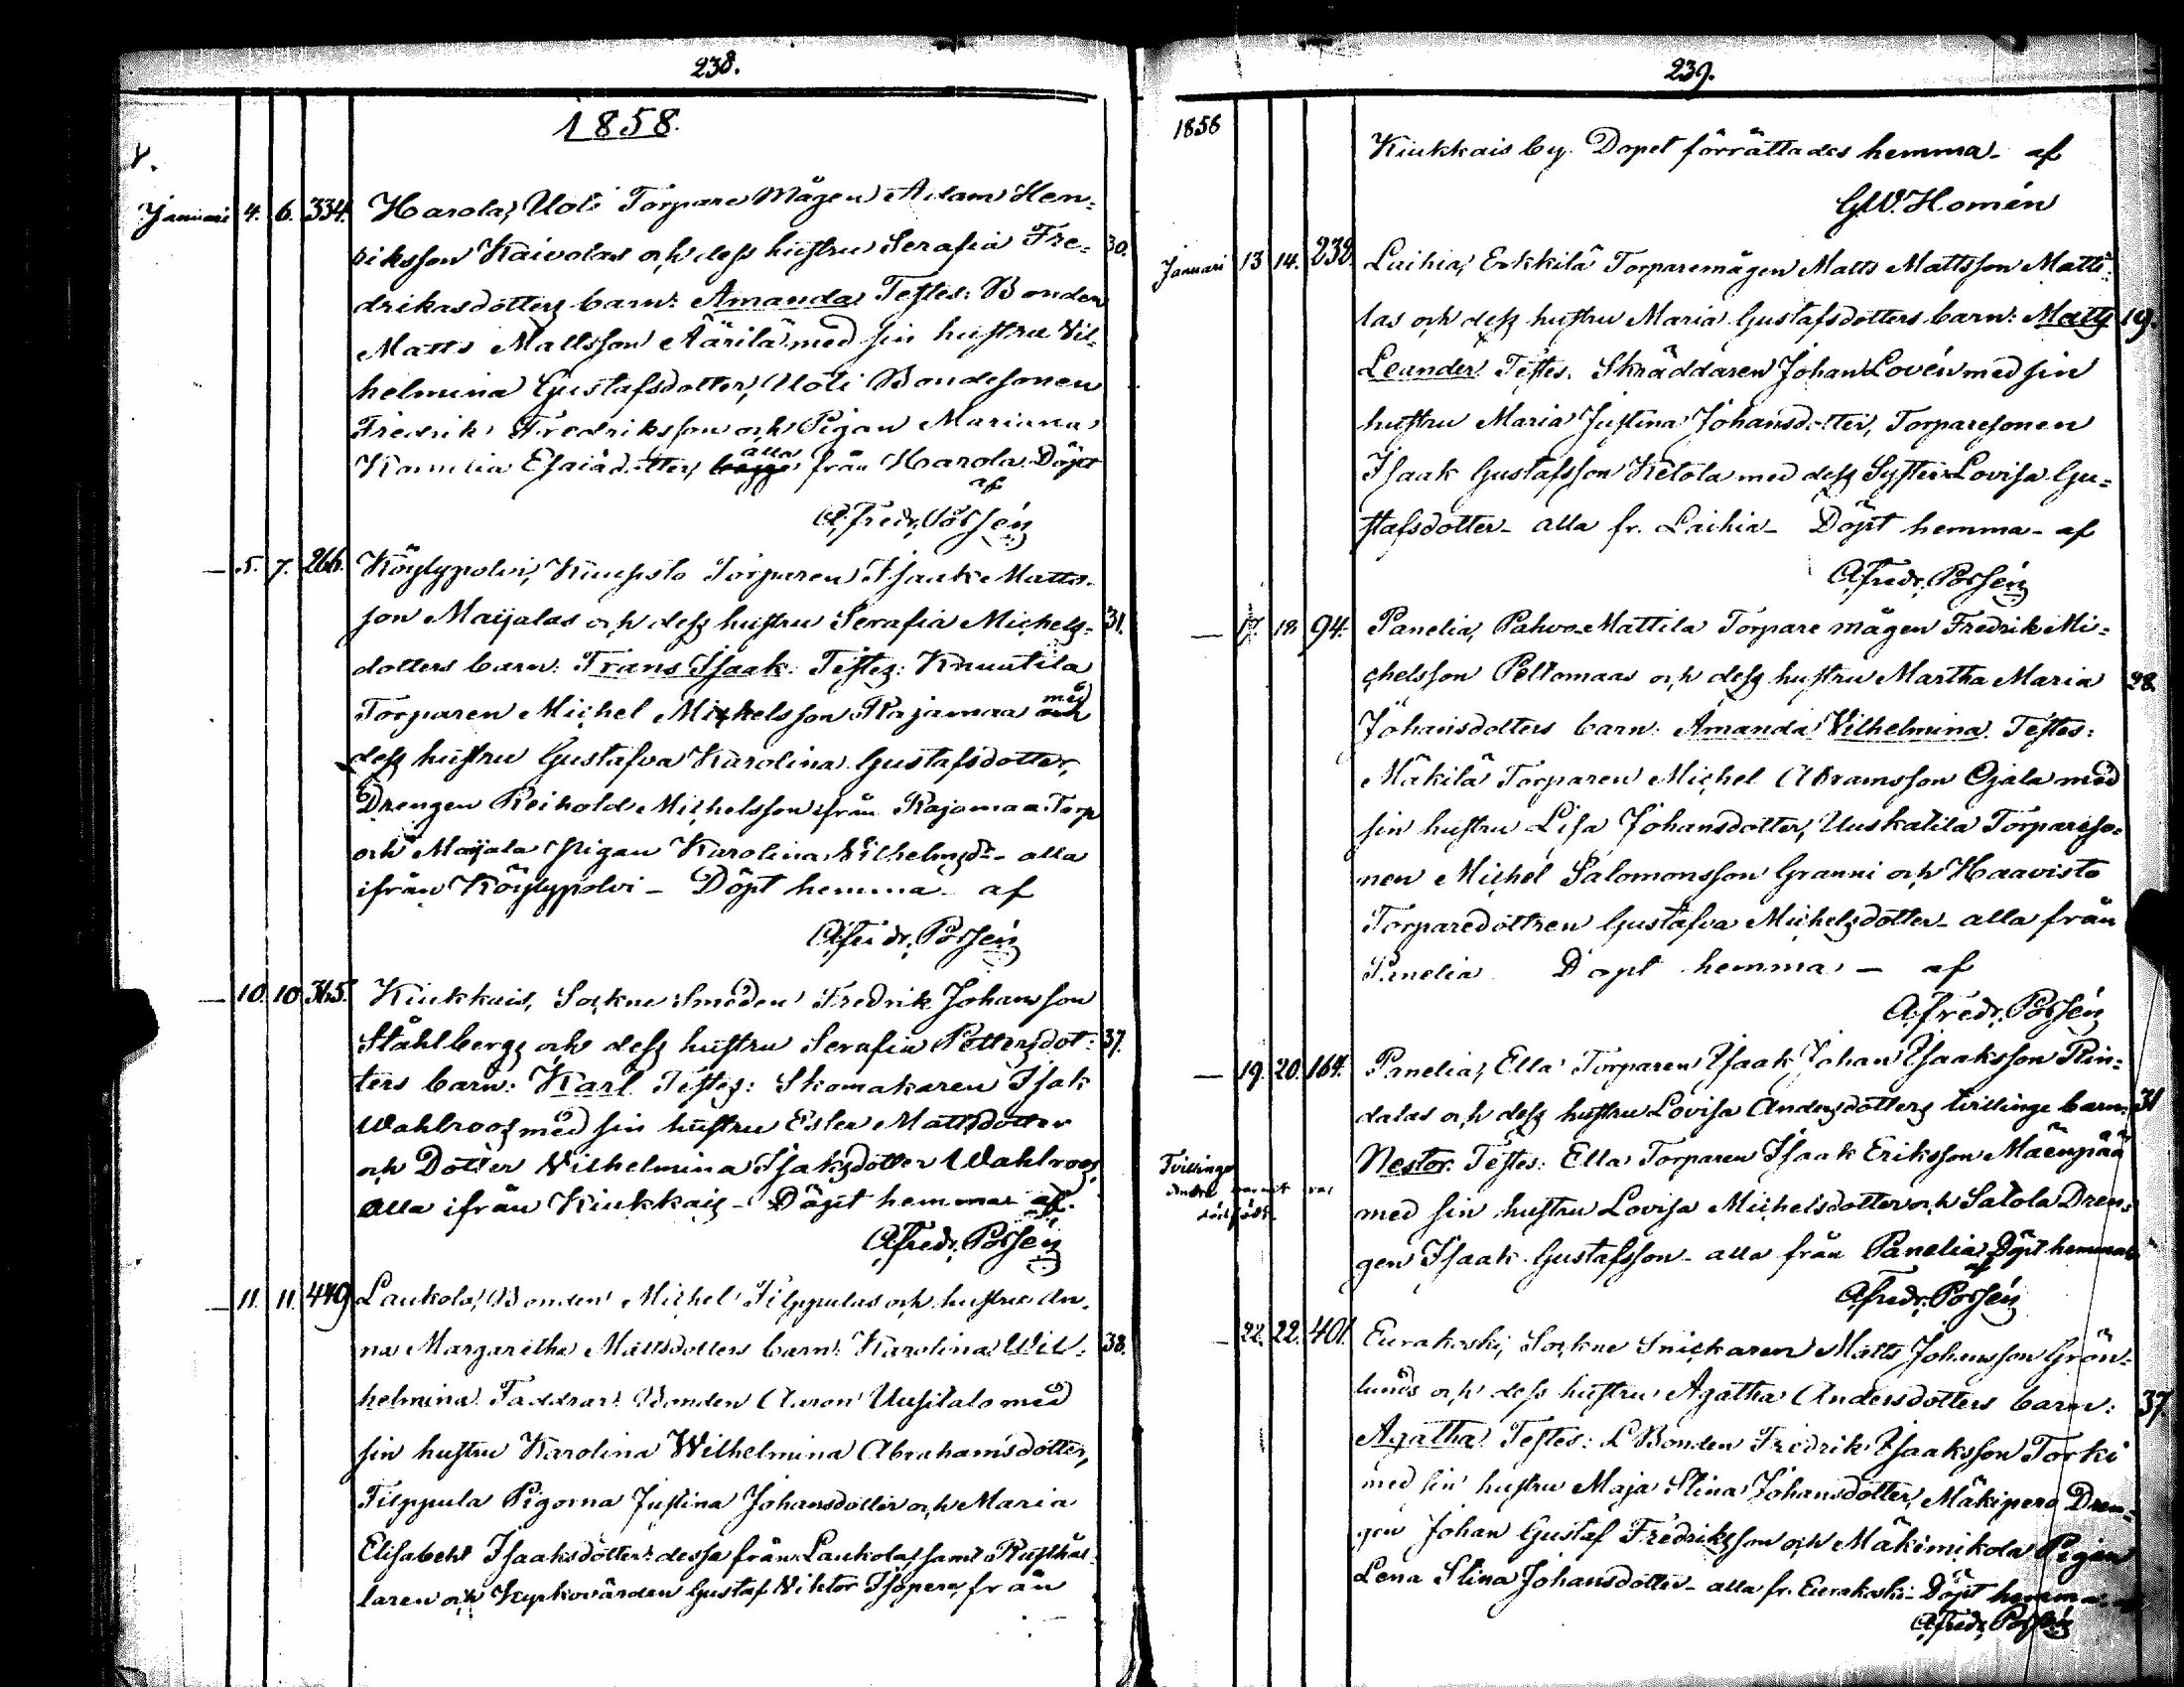 238.
1858.
Januari 4. 6. 334. Harola, Uoti Torpare Mågen Adam Hen-
riksson Kaivolas och dess hustru Serafia Fre- 30.
drikasdotters barn: Amanda Testes: Bonden
Matts Mattsson Äärilä med sin hustru Vil-
helmina Gustafsdotter, Uoti Bondesonen
Fredrik Fredriksson och Pigan Marianna
Kornelia Esaiädotter, alla från Harola Döpt
af
A. Fredr. Possén
— 5. 7. 266. Köylypolvi, Torparen Isaak Matts-
son Maijalas och dess hustru Serafia Michels- 31.
dotters barn: Frans Isaak. Testes: Knuutila
Torparen Michel Mickelsson Rajamaa med
dess hustru Gustafva Karolina Gustafsdotter,
Drengen Reihold Michelsson ifrån Rajamaa Torp
och Maijala Pigan Karolina Vilhelmsdr - alla
ifrån Köylypolvi - Döpt hemma af
A. Fredr. Possén
— 10. 10. 365. Kiukkais, Sockne Smeden Fredrik Johansson
Ståhlbergs och dess hustru Serafia Pettersdot- 37.
ters barn: Karl Testes: Skomakaren Isak
Wahlroos med sin hustru Ester Mattsdotter
och Dotter Vilhelmina Isaksdotter Wahlroos
alla ifrån Kiukkais - Döpt hemma af
A. Fredr. Possén
— 11. 11. 449 Laukola, Bonden Michel Filppulas och hustru An-
na Margaretha Mattsdotters barn: Karolina Wil- 38.
helmina Faddrar: Bonden Aaron Uusitalo med
sin hustru Karolina Wilhelmina Abrahamsdotter,
Filppula Pigorna Justina Johansdotter och Maria
Elisabeht Isaaksdotter: dessa från Laukola, samt Rusthål-
laren och Kyrkovärden Gustaf Viktor från
239.
1858
Kiukkais by. Dopet förrättades hemma - af
G.W. Homén
Januari 13 14. 238. Laihia, Erkkilä Torparemågen Matts Mattsson Matti-
las och dess hustru Maria Gustafsdotters barn: Matts 19.
Leander. Testes. Skräddaren Johan Lovén med sin
hustru Maria Justina Johansdotter, Torparesonen
Isaak Gustafsson Ketola med dess Syster Lovisa Gu-
stafsdotter - alla fr. Laihia - Döpt hemma - af
A. Fredr. Possén
— 17. 18 94. Panelia, Pahvo-Mattila Torpare mågen Fredrik Mi-
chelsson Peltomaas och dess hustru Martha Maria 28.
Johansdotters barn: Amanda Vilhelmina. Testes:
Mäkilä Torparen Michel Abramsson Ojala med
sin hustru Lisa Johansdotter, Uuskatila Torpareso-
nen Michel Salomonsson Granni och Haavisto
Torparedottren Gustafva Michelsdotter - alla från
Panelia Döpt hemma - af
A. Fredr. Possén
— 19. 20. 164. Panelia, Ella Torparen Isaak Johan Isaaksson Rin-
dalas och dess hustru Lovisa Andersdotters tvillinge barn: 31
Tvillinge
andra barnet var
dödfödt.
Nestor. Testes: Ella Torparen Isaak Eriksson Mäenpää
med sin hustru Lovisa Michelsdotter och Satola Dren-
gen Isaak Gustafsson - alla från Panelia Döpt hemma
af
A. Fredr. Possén
— 22. 22. 401. Eurakoski, Sockne Snickaren Matts Johansson Grön-
lunds och dess hustru Agatha Andersdotters barn: 37.
Agatha. Testes: L. Bonden Fredrik Isaaksson Torki
med sin hustru Maja Stina Johansdotter, Mäkipere Dren-
gen Johan Gustaf Fredriksson och Mäkimikola Pigan
Lena Stina Johansdotter - alla fr. Eurakoski - Döpt hemma af
A. Fredr. Possén